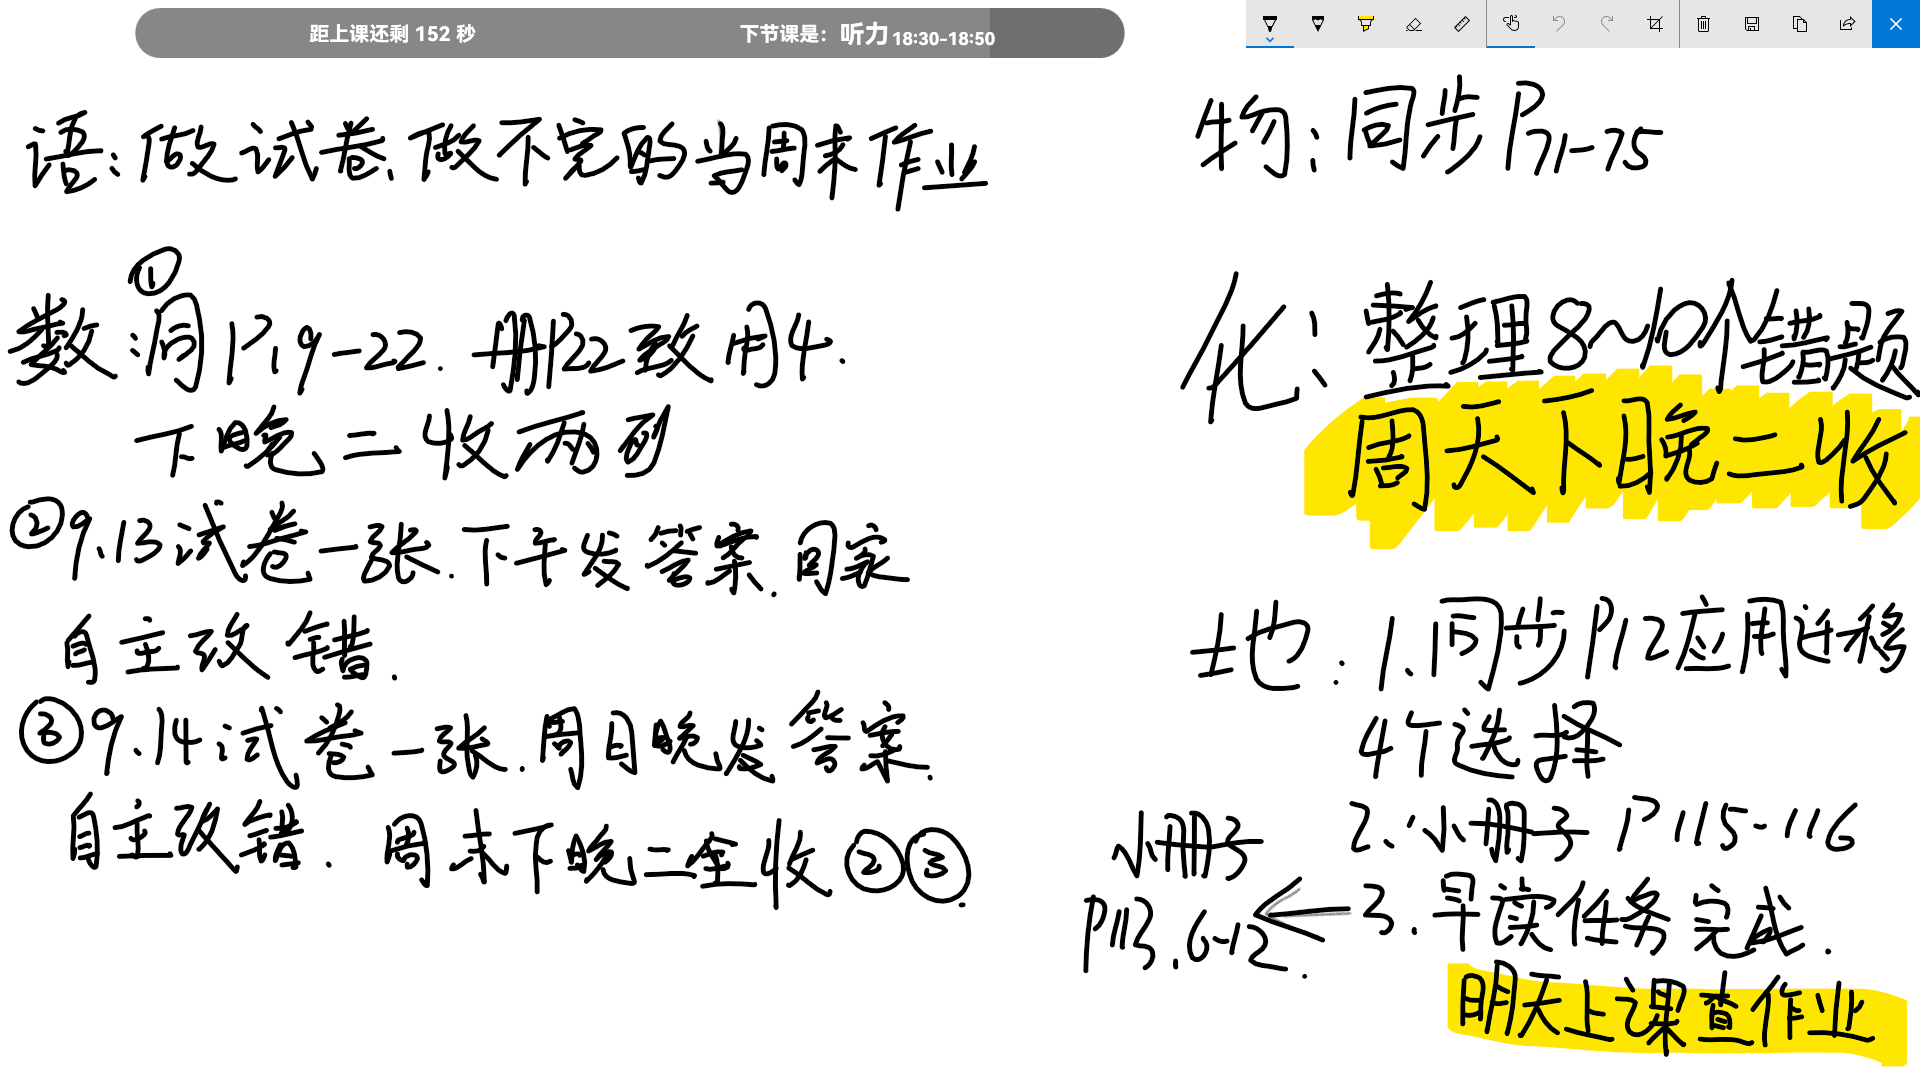 距上课还剩 152 秒
下节课是：听力 18:30-18:50
语：做试卷、做不完的当周末作业
数：①同P19-22．册P22致用4．
下晚二收两列
②9.13试卷一张．下午发答案．回家
自主改错．
③9.14试卷一张．周日晚发答案．
自主改错．周末下晚二全收②③．
物：同步P71-75
化：整理8~10个错题
周天下晚二收
地：1、同步P12应用迁移
4个选择
2、小册子P115-116
3．早读任务完成．
小册子
P113．6-12．
明天上课查作业